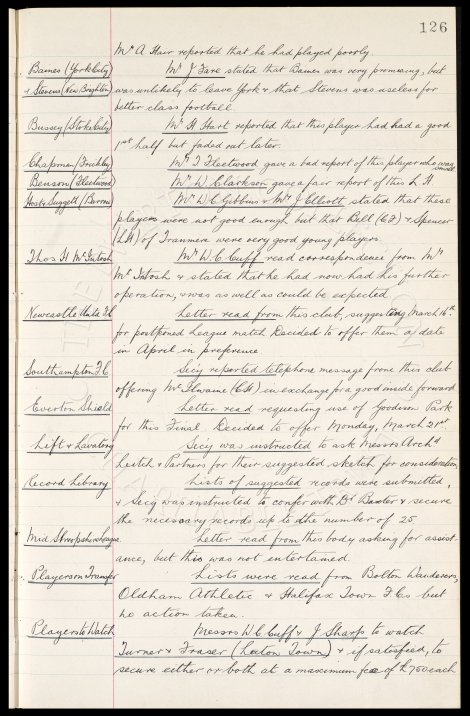 126
Mr A Hair reported that he had played poorly.
Barnes (York City) Mr J Fare stated that Barnes was very promising, but
& Stevens (New Brighton) was unlikely to leave York & that Stevens was useless for
better class football.
Bussey (Stoke City) Mr H Hart reported that this player had had a good
1st half but faded out later.
Chapman Brickley Mr T Fleetwood gave a bad report of this player who was small
Benson (Fleetwood) Mr W Clarkson gave a fair report of this L H
Host & Suggett (Barrow) Mr W C Gibbins & Mr J Elliott stated that these
players were not good enough but that Bell (CF) & Spencer
(LH) of Tranmere were very good young players
Thos H McIntosh Mr W. C. Cuff read correspondence from Mr
McIntosh & stated that he had now had his further
operation, & was as well as could be expected
Newcastle Utd. F.C. Letter read from this club, suggesting March 16th
for postponed League match Decided to offer them a date
in April in preference
Southampton F.C Secy reported telephone message from this club
offering McIlwaine (CH) in exchange for a good inside forward
Everton Shield Letter read requesting use of Goodison Park
for this Final Decided to offer Monday, March 21st.
Lift & Lavatory Secy was instructed to ask Messrs Archd
Leitch & Partners for their suggested sketch for consideration
Record Library Lists of suggested records were submitted,
& Secy was instructed to confer with Dr Baxter & secure
the necessary records up to the number of 25.
Mid Shropshire League Letter read from this body asking for assist-
ance, but this was not entertained.
Players on Transfer Lists were read from Bolton Wanderers,
Oldham Athletic & Halifax Town F.Cs but
no action taken.
Players to Watch Messrs W. C. Cuff & J Sharp to watch
Turner & Fraser (Luton Town) & if satisfied, to
secure either or both at a maximum fee of £750 each